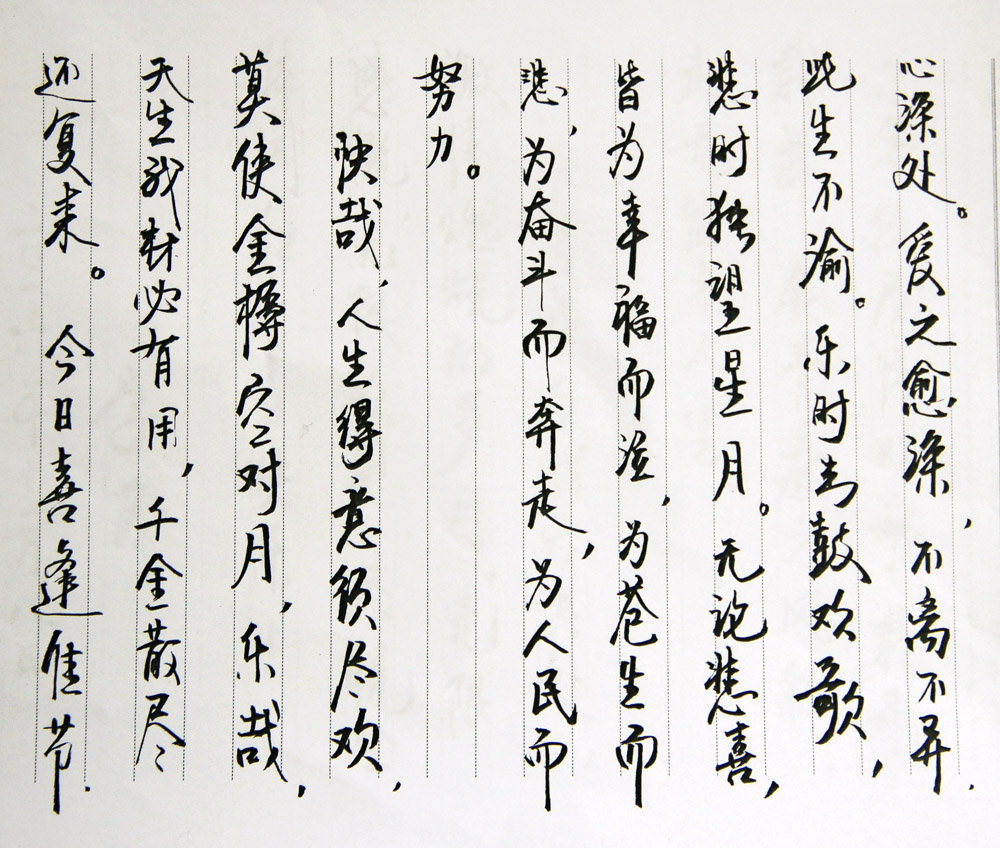 心深处。爱之愈深，不离不弃，
此生不渝。乐时击鼓欢歌，
悲时独望星月。无论悲喜，
皆为幸福而泣，为苍生而
悲，为奋斗而奔走，为人民而
努力。
快哉，人生得意须尽欢，
莫使金樽空对月，乐哉，
天生我材必有用，千金散尽
还复来。今日喜逢佳节，